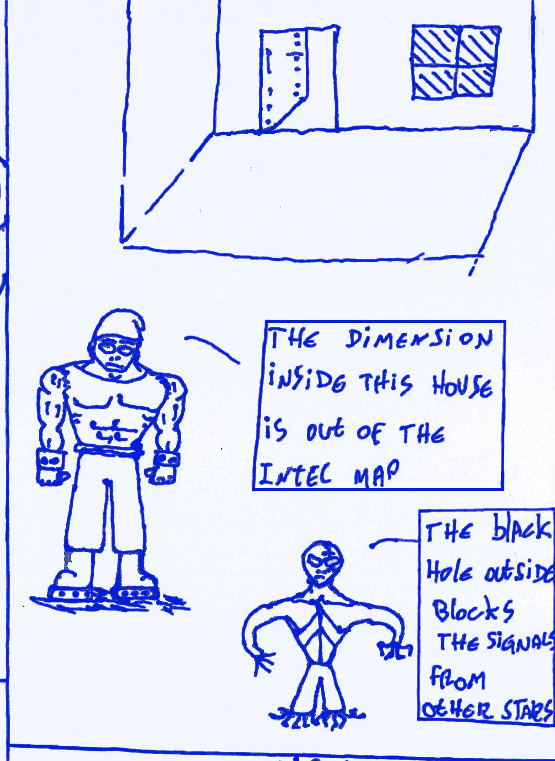 THE DiMENSiON
iNSiDE THiS HOUSE
iS OUT OF THE
INTEC MAP
THE blACK
HolE outSiDE
BlocKS
THE SiGNALS
FROM
OTHER STARS